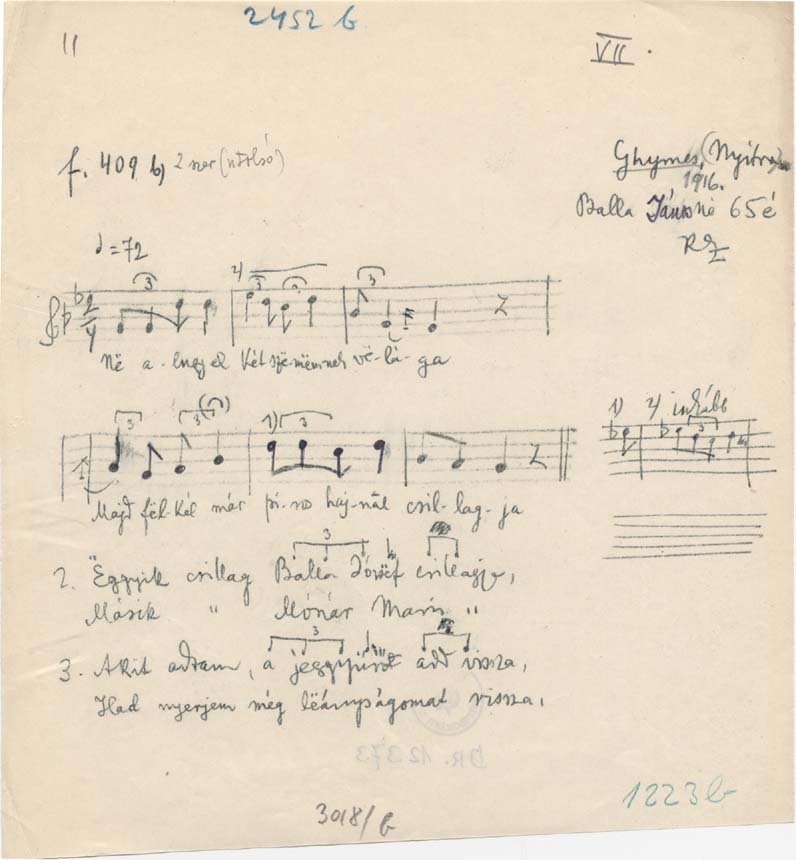 2452 b
11
VII.
f. 409 b, 2szer (utolsó)
Ghymes, (Nyitra)
1916.
Balla Jánosné 65 é
♩ = 72
3
2) 3
3
2/4
Në a-lugyek két szë-mëmnek vë-lá-ga
3
3
1) 3
1) 2) inkább
3
Majd fël-kél már pi-ros haj-nal csil-lag-ja
3
2. Ëggyik csillag Balla József csillagja,
Másik " Mónár Maris "
3
3. Akit adtam, a jëggyűrűt add vissza,
Had nyerjem még lëányságomat vissza.
DR. 12373
1223 b
3018/b